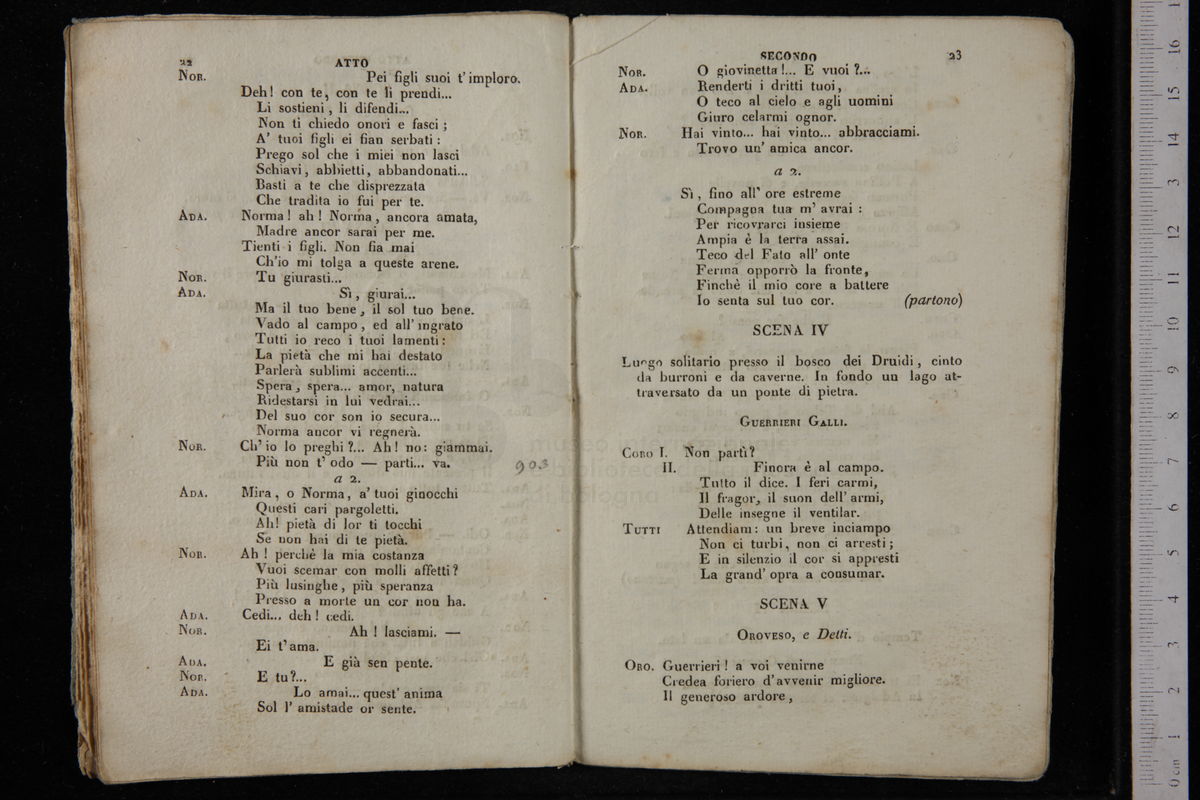 22 ATTO
NOR. Pei figli suoi t' imploro.
Deh! con te, con te li prendi...
Li sostieni, li difendi...
Non ti chiedo onori e fasci;
A' tuoi figli ei fian serbati:
Prego sol che i miei non lasci
Schiavi, abbietti, abbandonati...
Basti a te che disprezzata
Che tradita io fui per te.
ADA. Norma! ah! Norma, ancora amata,
Madre ancor sarai per me.
Tienti i figli. Non fia mai
Ch'io mi tolga a queste arene.
NOR. Tu giurasti...
ADA. Sì, giurai...
Ma il tuo bene, il sol tuo bene.
Vado al campo, ed all' ingrato
Tutti io reco i tuoi lamenti:
La pietà che mi hai destato
Parlerà sublimi accenti...
Spera, spera... amor, natura
Ridestarsi in lui vedrai...
Del suo cor son io secura...
Norma ancor vi regnerà.
NOR. Ch' io lo preghi?... Ah! no: giammai.
Più non t' odo — parti... va. 903
a 2.
ADA. Mira, o Norma, a' tuoi ginocchi
Questi cari pargoletti.
Ah! pietà di lor ti tocchi
Se non hai di te pietà.
NOR. Ah! perchè la mia costanza
Vuoi scemar con molli affetti?
Più lusinghe, più speranza
Presso a morte un cor non ha.
ADA. Cedi... deh! cedi.
NOR. Ah! lasciami. —
Ei t' ama.
ADA. E già sen pente.
NOR. E tu?...
ADA. Lo amai... quest' anima
Sol l' amistade or sente.
SECONDO 23
NOR. O giovinetta!... E vuoi?...
ADA. Renderti i dritti tuoi,
O teco al cielo e agli uomini
Giuro celarmi ognor.
NOR. Hai vinto... hai vinto... abbracciami.
Trovo un' amica ancor.
a 2.
Sì, fino all' ore estreme
Compagna tua m' avrai:
Per ricovrarci insieme
Ampia è la terra assai.
Teco del Fato all' onte
Ferma opporrò la fronte,
Finchè il mio core a battere
Io senta sul tuo cor. (partono)
SCENA IV
Luogo solitario presso il bosco dei Druidi, cinto
da burroni e da caverne. In fondo un lago at-
traversato da un ponte di pietra.
GUERRIERI GALLI.
CORO I. Non partì?
II. Finora è al campo.
Tutto il dice. I feri carmi,
Il fragor, il suon dell' armi,
Delle insegne il ventilar.
TUTTI Attendiam: un breve inciampo
Non ci turbi, non ci arresti;
E in silenzio il cor si appresti
La grand' opra a consumar.
SCENA V
OROVESO, e Detti.
ORO. Guerrieri! a voi venirne
Credea foriero d' avvenir migliore.
Il generoso ardore,